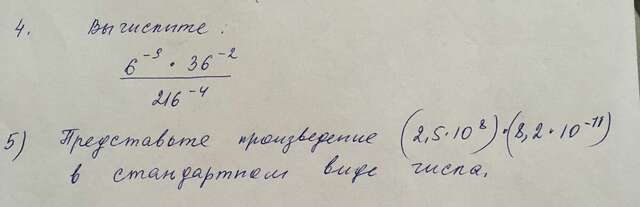 4. Вычислите:
6⁻⁹ · 36⁻²
216⁻⁴
5) Представьте произведение (2,5·10⁸)·(8,2·10⁻¹¹)
в стандартном виде числа.